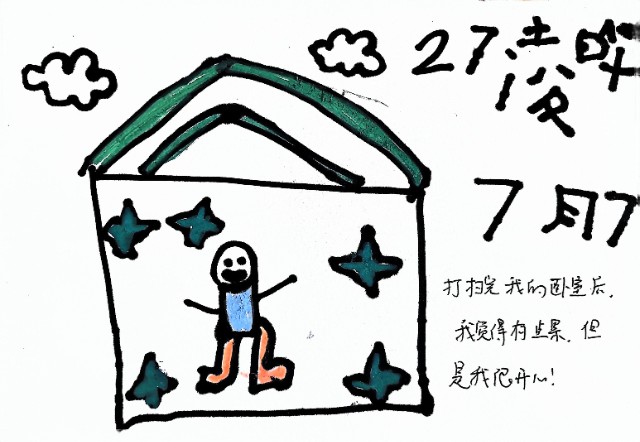 27凌晔
7月7
打扫完我的卧室后,
我觉得有点累,但
是我很开心!